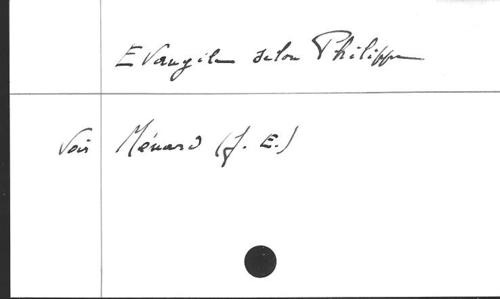 Evangile selon Philippe
Voir Ménard (J. E.)